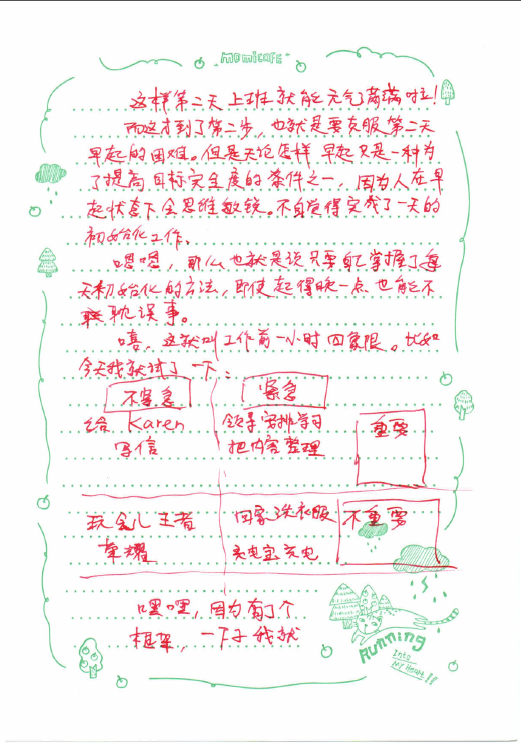 momicafe
这样第二天上班就能元气满满啦!
而这才到了第二步,也就是要克服第二天
早起的困难。但是无论怎样早起只是一种为
了提高目标完全度的条件之一,因为人在早
起状态下会思维敏锐。不自觉得完成了一天的
初始化工作。
嗯嗯,那么也就是说只要自己掌握了每
天初始化的方法,即使起得晚一点也能不
耽误事。
嘻,这就叫工作前一小时四象限。比如
今天我就试了一下:
不紧急 紧急
给 Karen 领导安排学习 重要
写信 把内容整理
玩会儿王者 回家洗衣服 不重要
荣耀 充电宝充电
嘿嘿,因为有了个
框架,一下子我就
Running
Into
My Heart!!